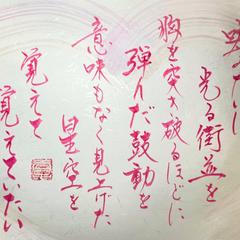 光る街並を
胸を突き破るほどに
弾んだ鼓動を
意味もなく見上げた
星空を
覚えて
覚えていたい